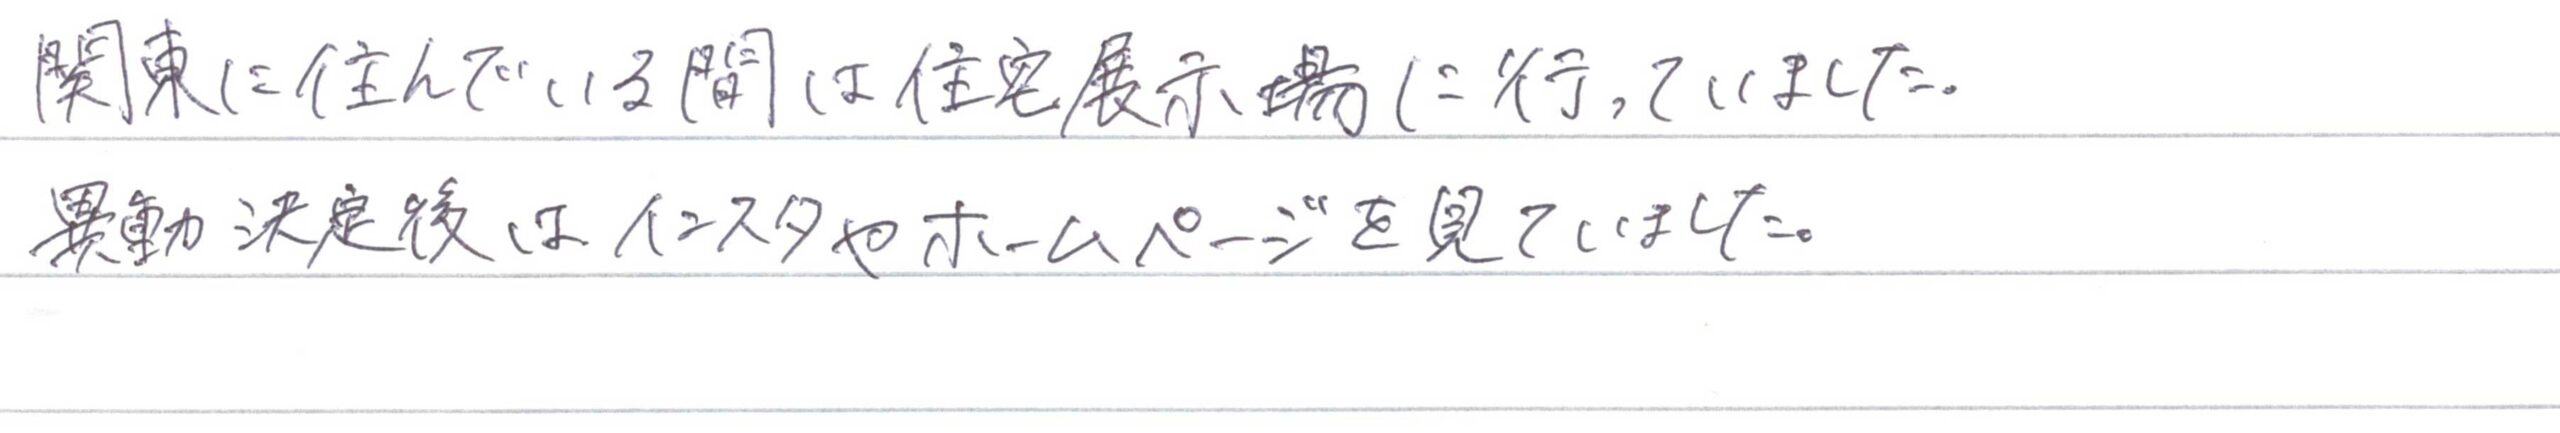 関東に住んでいる間は住宅展示場に行っていました。
異動決定後はインスタやホームページを見ていました。